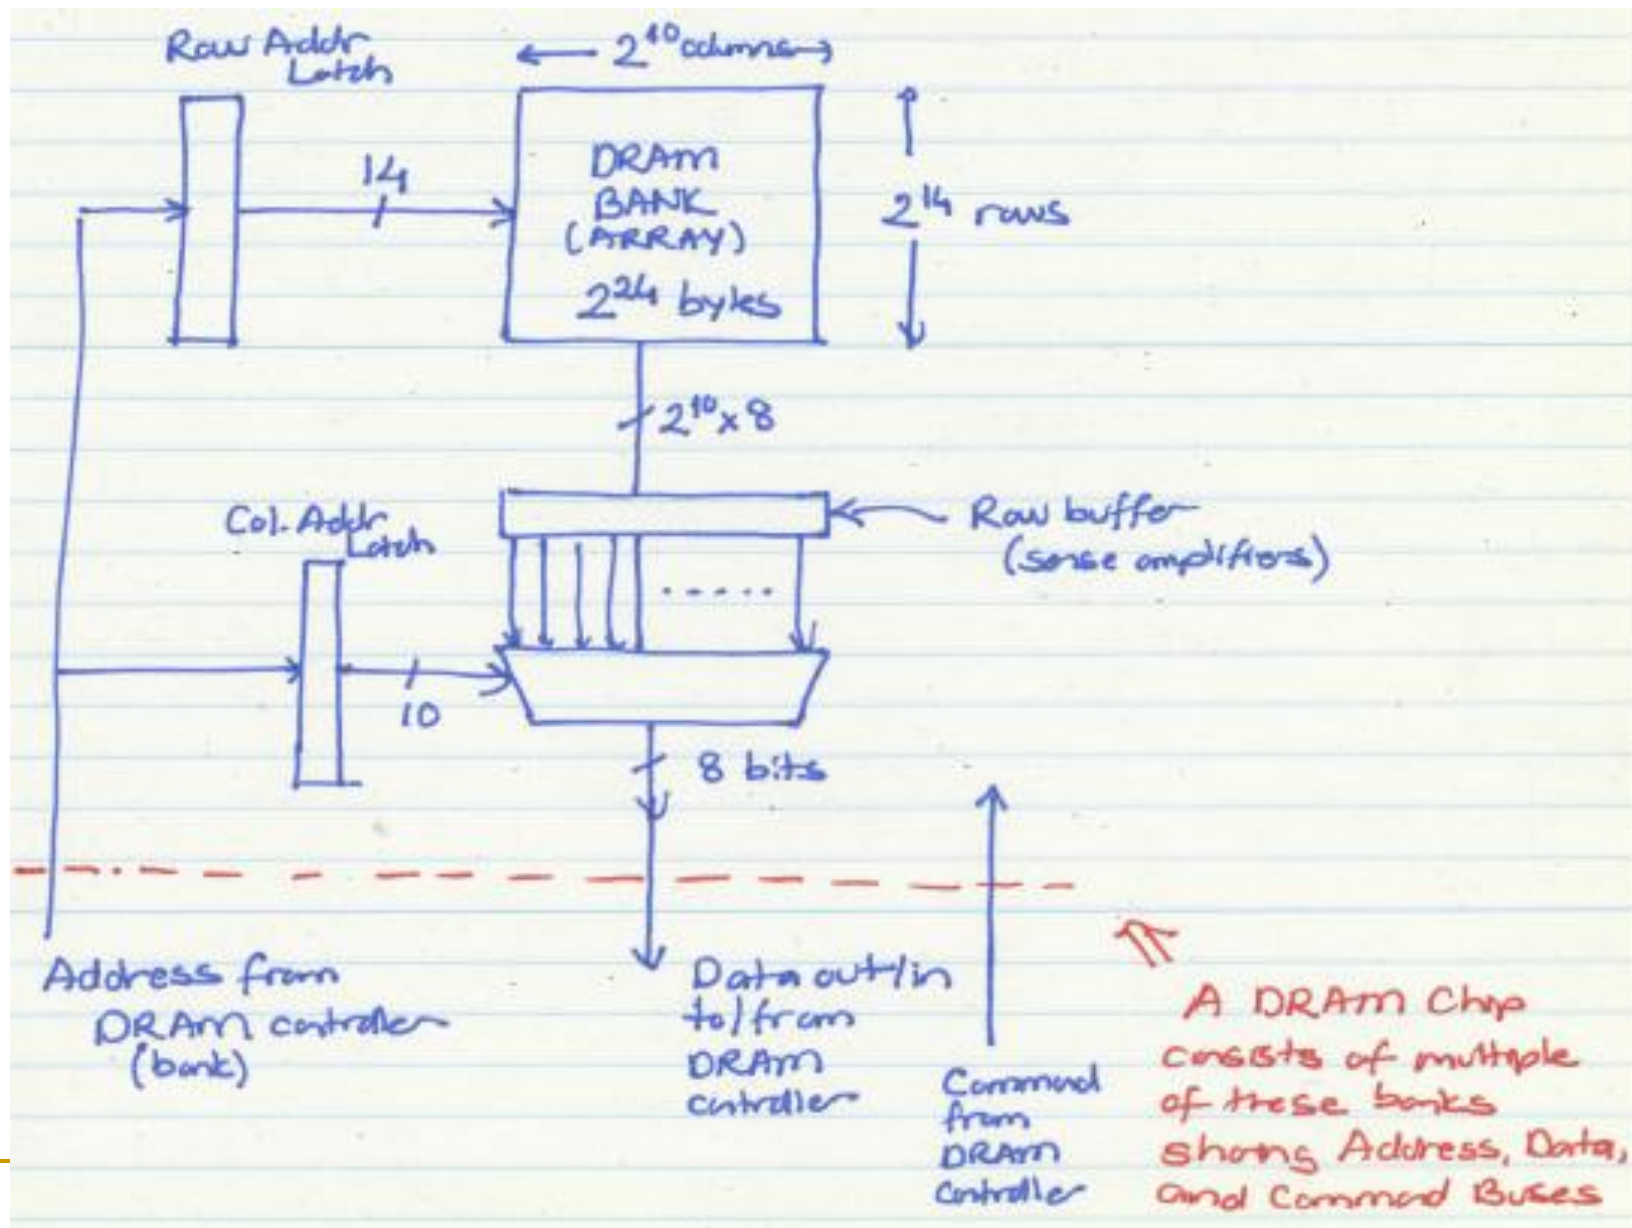 Row Addr
Latch
← 2^10 columns →
14
DRAM
BANK
(ARRAY)
2^24 bytes
2^14 rows
2^10 x 8
Col. Addr
Latch
Row buffer
(sense amplifiers)
10
8 bits
Address from
DRAM controller
(bank)
Data out/in
to/from
DRAM
controller
Command
from
DRAM
Controller
A DRAM Chip
consists of multiple
of these banks
sharing Address, Data,
and Command Buses